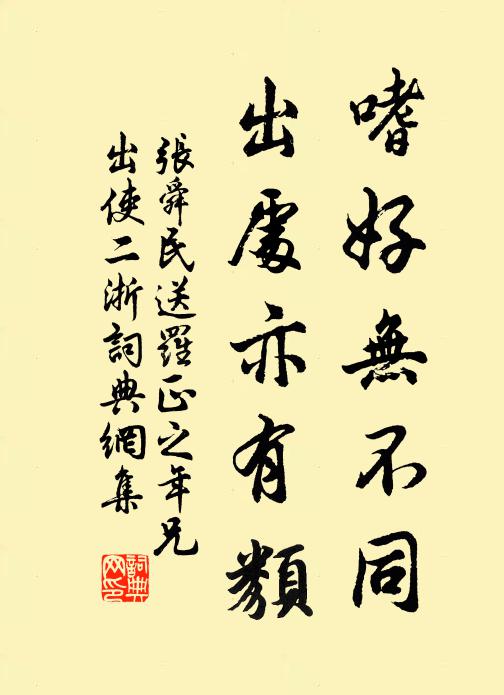 嗜好無不同
出處亦有類
張舜民送羅正之年兄
出使二浙詞典網集
詞典網印